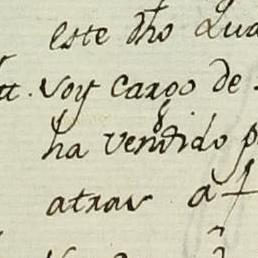 este dho Qua
tt. Voy Cargo de
ha vendido p
atras a f